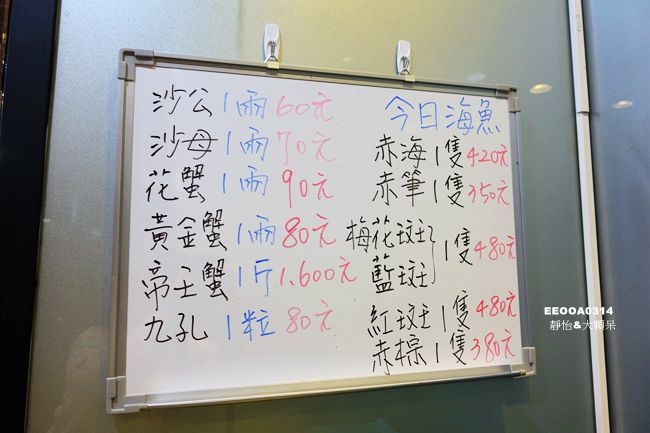 沙公1兩60元
沙母1兩70元
花蟹1兩90元
黃金蟹1兩80元
帝王蟹1斤1.600元
九孔1粒80元
今日海魚
赤海1隻420元
赤筆1隻350元
梅花斑
藍斑
1隻480元
紅斑1隻480元
赤棕1隻380元
EEOOA0314
靜怡&大顆呆